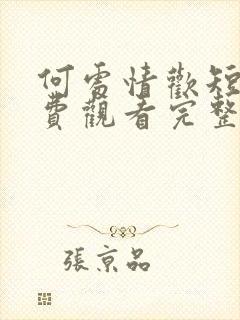 何處情歡短
費觀看完整
張京品